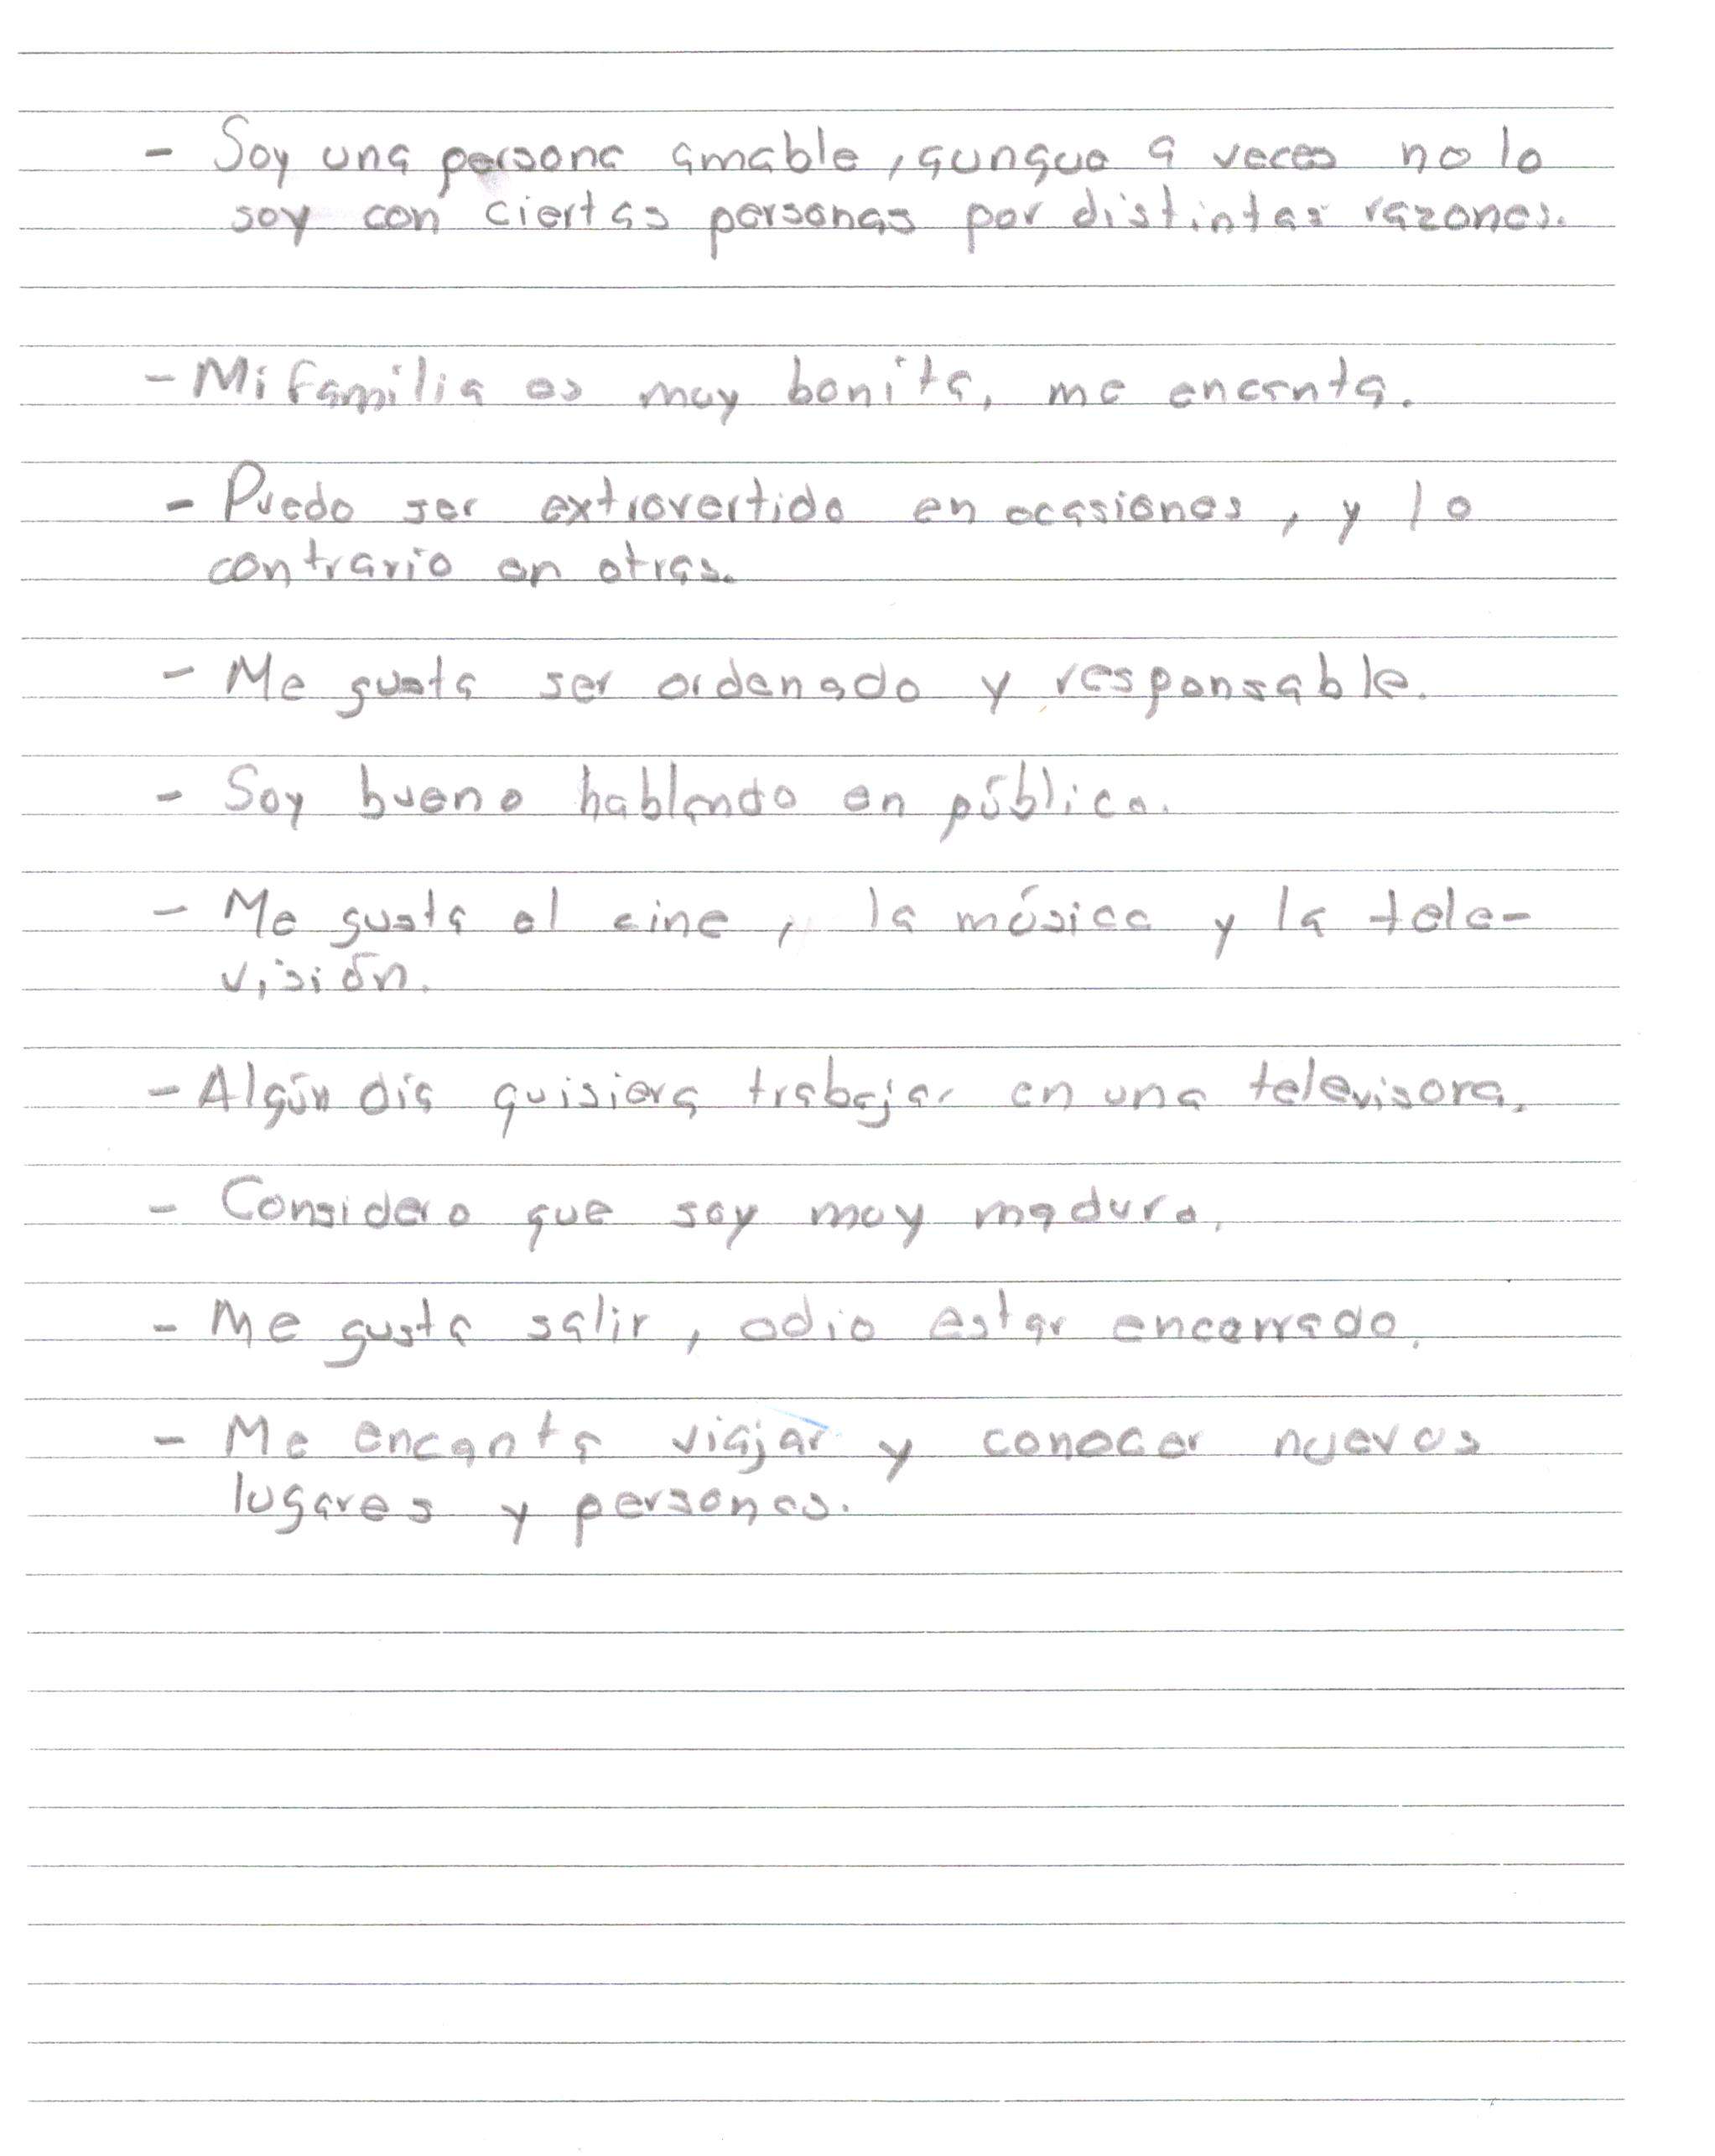 - Soy una persona amable, aunque a veces no lo
soy con ciertas personas por distintas razones.
- Mi familia es muy bonita, me encanta.
- Puedo ser extrovertido en ocasiones, y lo
contrario en otras.
- Me gusta ser ordenado y responsable.
- Soy bueno hablando en público.
- Me gusta el cine, la música y la tele-
visión.
- Algún día quisiera trabajar en una televisora.
- Considero que soy muy maduro.
- Me gusta salir, odio estar encerrado.
- Me encanta viajar y conocer nuevos
lugares y personas.